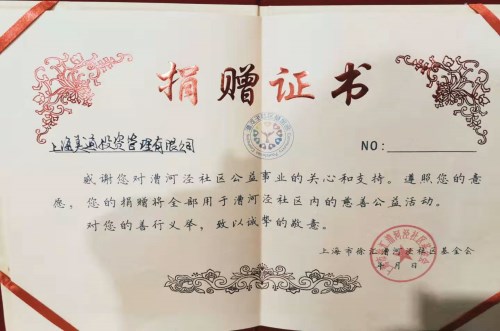 捐赠证书
上海美通投资管理有限公司
NO:
感谢您对漕河泾社区公益事业的关心和支持。遵照您的意
愿，您的捐赠将全部用于漕河泾社区内的慈善公益活动。
对您的善行义举，致以诚挚的敬意。
上海市徐汇漕河泾社区基金会
年 月 日